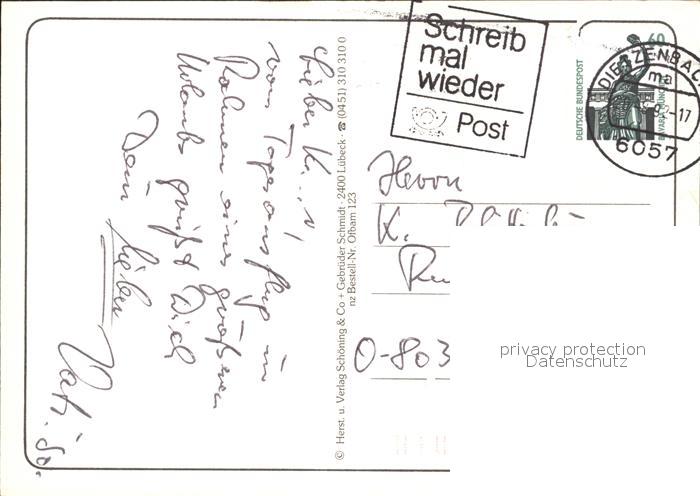 Lieber K...,
vom Tagesausflug im
Rahmen eines größeren
Urlaubs grüßt Dich
Dein lieber
Vati.
© Herst. u. Verlag Schöning & Co + Gebrüder Schmidt · 2400 Lübeck · ☎ (0451) 310 310 0
nz Bestell-Nr. Ofbam 123
Schreib
mal
wieder
Post
60
DEUTSCHE BUNDESPOST
BAVARIA MÜNCHEN
DIETZENBA
ma
-17
6057
Herrn
K.
O-803
privacy protection
Datenschutz